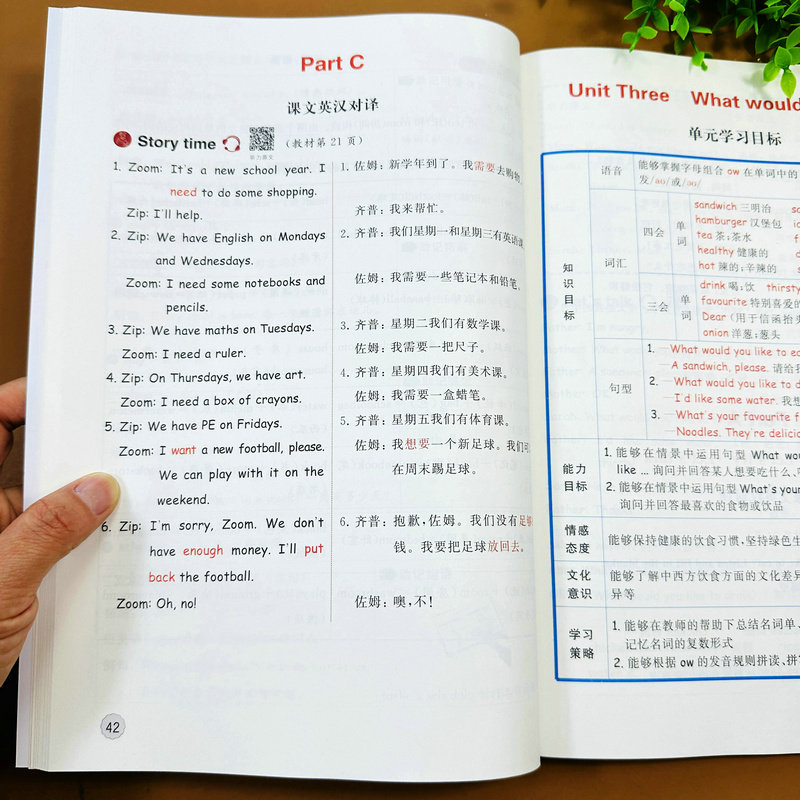 Part C
课文英汉对译
Story time
听力原文
(教材第 21 页)
1. Zoom: It's a new school year. I
need to do some shopping.
Zip: I'll help.
2. Zip: We have English on Mondays
and Wednesdays.
Zoom: I need some notebooks and
pencils.
3. Zip: We have maths on Tuesdays.
Zoom: I need a ruler.
4. Zip: On Thursdays, we have art.
Zoom: I need a box of crayons.
5. Zip: We have PE on Fridays.
Zoom: I want a new football, please.
We can play with it on the
weekend.
6. Zip: I'm sorry, Zoom. We don't
have enough money. I'll put
back the football.
Zoom: Oh, no!
1. 佐姆：新学年到了。我需要去购物。
齐普：我来帮忙。
2. 齐普：我们星期一和星期三有英语课
佐姆：我需要一些笔记本和铅笔。
3. 齐普：星期二我们有数学课。
佐姆：我需要一把尺子。
4. 齐普：星期四我们有美术课。
佐姆：我需要一盒蜡笔。
5. 齐普：星期五我们有体育课。
佐姆：我想要一个新足球。我们可
在周末踢足球。
6. 齐普：抱歉，佐姆。我们没有足够
钱。我要把足球放回去。
佐姆：噢，不！
42
Unit Three What would
单元学习目标
知识目标
语音
能够掌握字母组合 ow 在单词中的
发/aʊ/或/əʊ/
词汇
四会
单词
sandwich 三明治
hamburger 汉堡包
tea 茶；茶水
healthy 健康的
hot 辣的；辛辣的
三会
单词
drink 喝；饮 thirsty
favourite 特别喜爱的
Dear (用于信函抬头
onion 洋葱；葱头
句型
1. —What would you like to ea
A sandwich, please. 请给我
2. —What would you like to d
—I'd like some water. 我想
3. —What's your favourite f
—Noodles. They're delicio
能力目标
1. 能够在情景中运用句型 What wou
like ... 询问并回答某人想要吃什么、
2. 能够在情景中运用句型 What's your
询问并回答最喜欢的食物或饮品
情感态度
能够保持健康的饮食习惯，坚持绿色生
文化意识
能够了解中西方饮食方面的文化差异
异等
学习策略
1. 能够在教师的帮助下总结名词单、
记忆名词的复数形式
2. 能够根据 ow 的发音规则拼读、拼